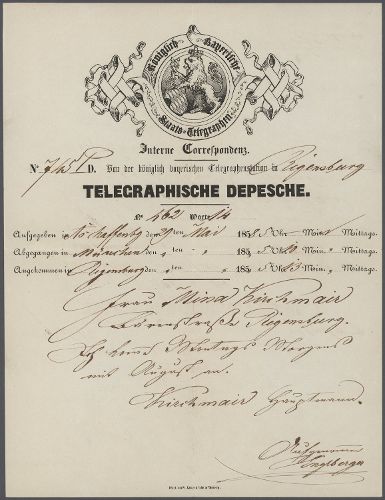 Königlich Bayerische
Staats-Telegraphen.
Interne Correspondenz.
No 745 P D. Von der königlich bayerischen Telegraphenstation in Rigensburg
TELEGRAPHISCHE DEPESCHE.
No 462 Worte 14
Aufgegeben in Aschaffenbg den 29 ten Mai 1858 Uhr Min. Mittags.
Abgegangen in München den " ten " 185 8 Uhr 20 Min. " Mittags.
Angekommen in Rigensburg den " ten " 185 8 Uhr Min. " Mittags.
Frau Mina Kirchmair
Rigensburg.
Ich komme Montags Morgens
mit August an.
Kirchmair Hauptmann.
Aufgenommen
Englberger